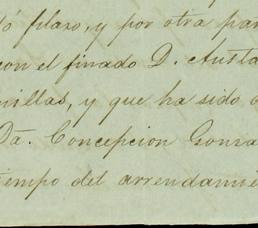 ó plazo, y por otra par
con el finado D. Austa
millas, y que ha sido
Dª. Concepcion Gonza
iempo del arrendamie